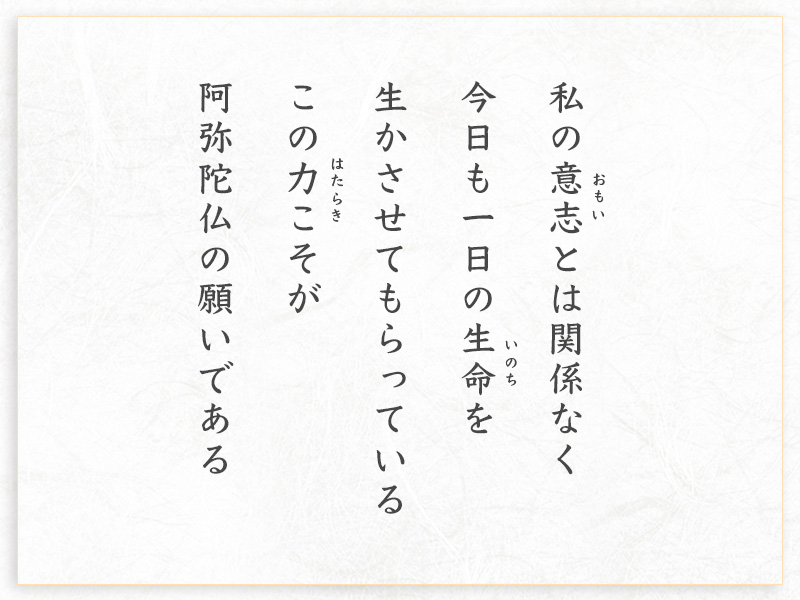 私の意志とは関係なく
おもい
今日も一日の生命を
いのち
生かさせてもらっている
この力こそが
はたらき
阿弥陀仏の願いである